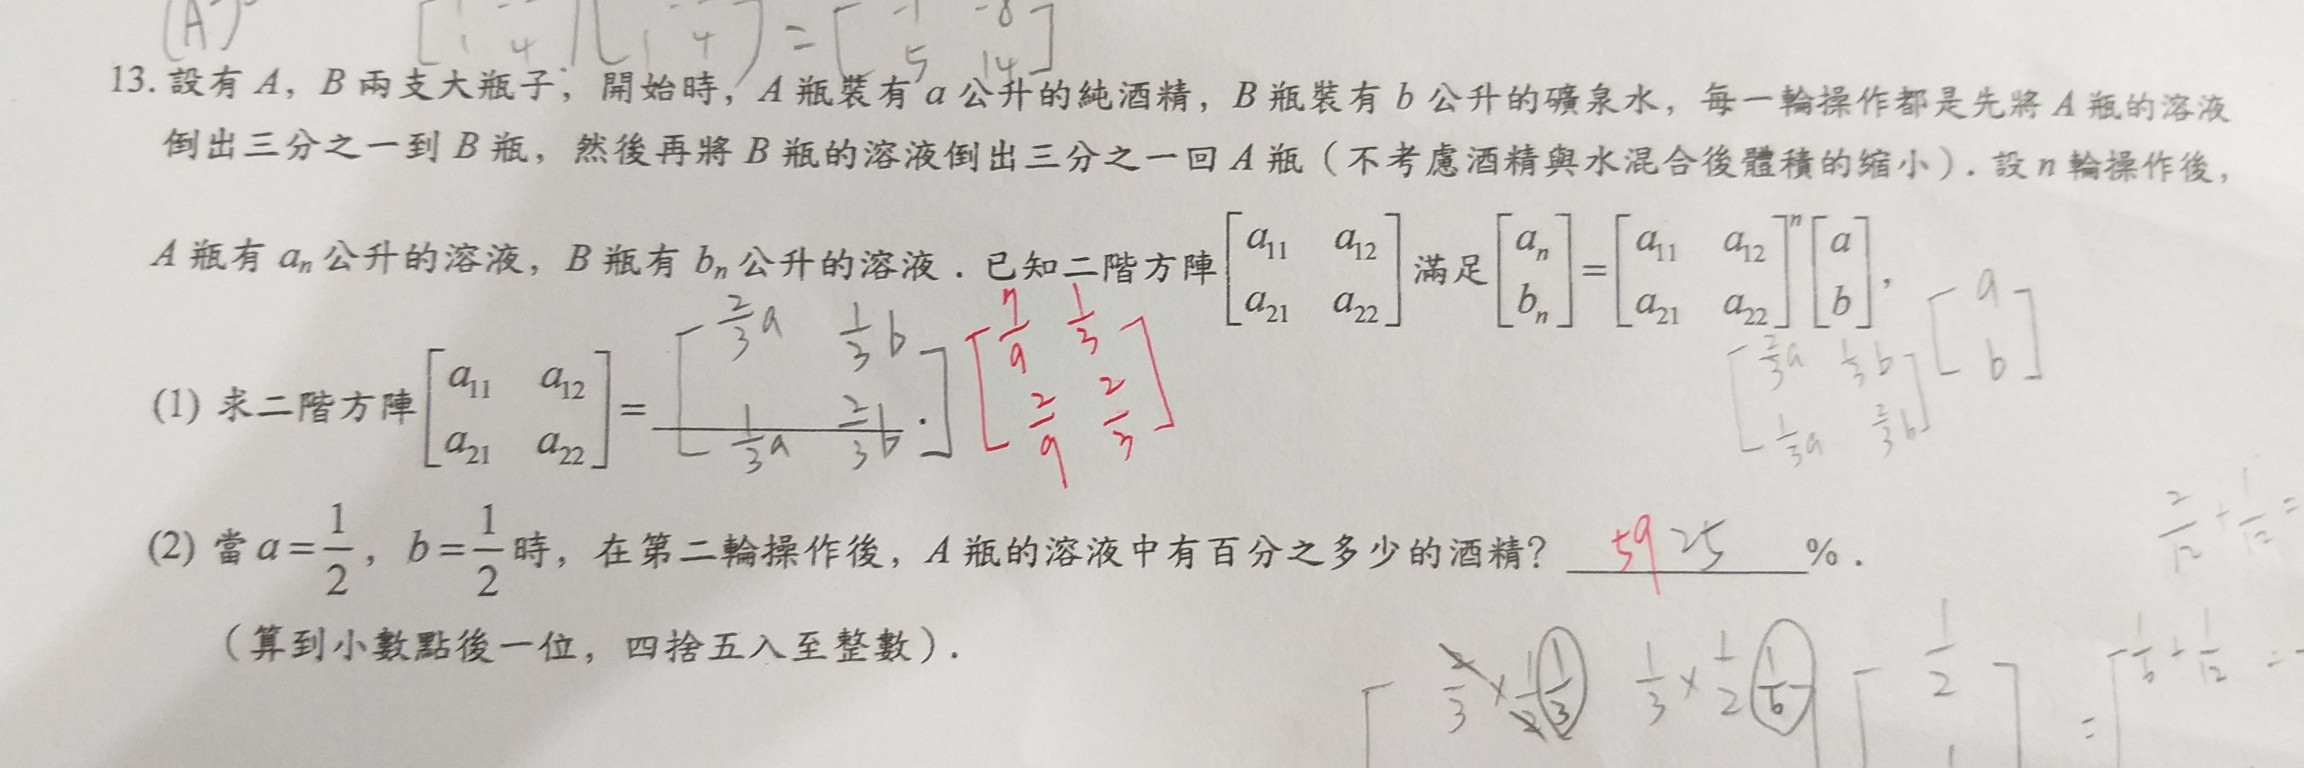 (A)
[1 4)(1 4) = [-1 -8
5 14]
13. 設有 A，B 兩支大瓶子，開始時，A 瓶裝有 a 公升的純酒精，B 瓶裝有 b 公升的礦泉水，每一輪操作都是先將 A 瓶的溶液
倒出三分之一到 B 瓶，然後再將 B 瓶的溶液倒出三分之一回 A 瓶（不考慮酒精與水混合後體積的縮小）. 設 n 輪操作後，
A 瓶有 aₙ 公升的溶液，B 瓶有 bₙ 公升的溶液．已知二階方陣 [a₁₁ a₁₂; a₂₁ a₂₂] 滿足 [aₙ; bₙ] = [a₁₁ a₁₂; a₂₁ a₂₂]ⁿ [a; b]，
(1) 求二階方陣 [a₁₁ a₁₂; a₂₁ a₂₂] = [2/3a 1/3b; 1/3a 2/3b]． [7/9 1/3; 2/9 2/3]
[2/3a 1/3b; 1/3a 2/3b] [a; b]
(2) 當 a=1/2，b=1/2 時，在第二輪操作後，A 瓶的溶液中有百分之多少的酒精？ 59 25 %．
2/12 + 1/12 =
（算到小數點後一位，四捨五入至整數）．
[2/3 × 1/2 1/3 1/3 × 1/2 1/6 [1/2 ] = [1/6 + 1/12 =